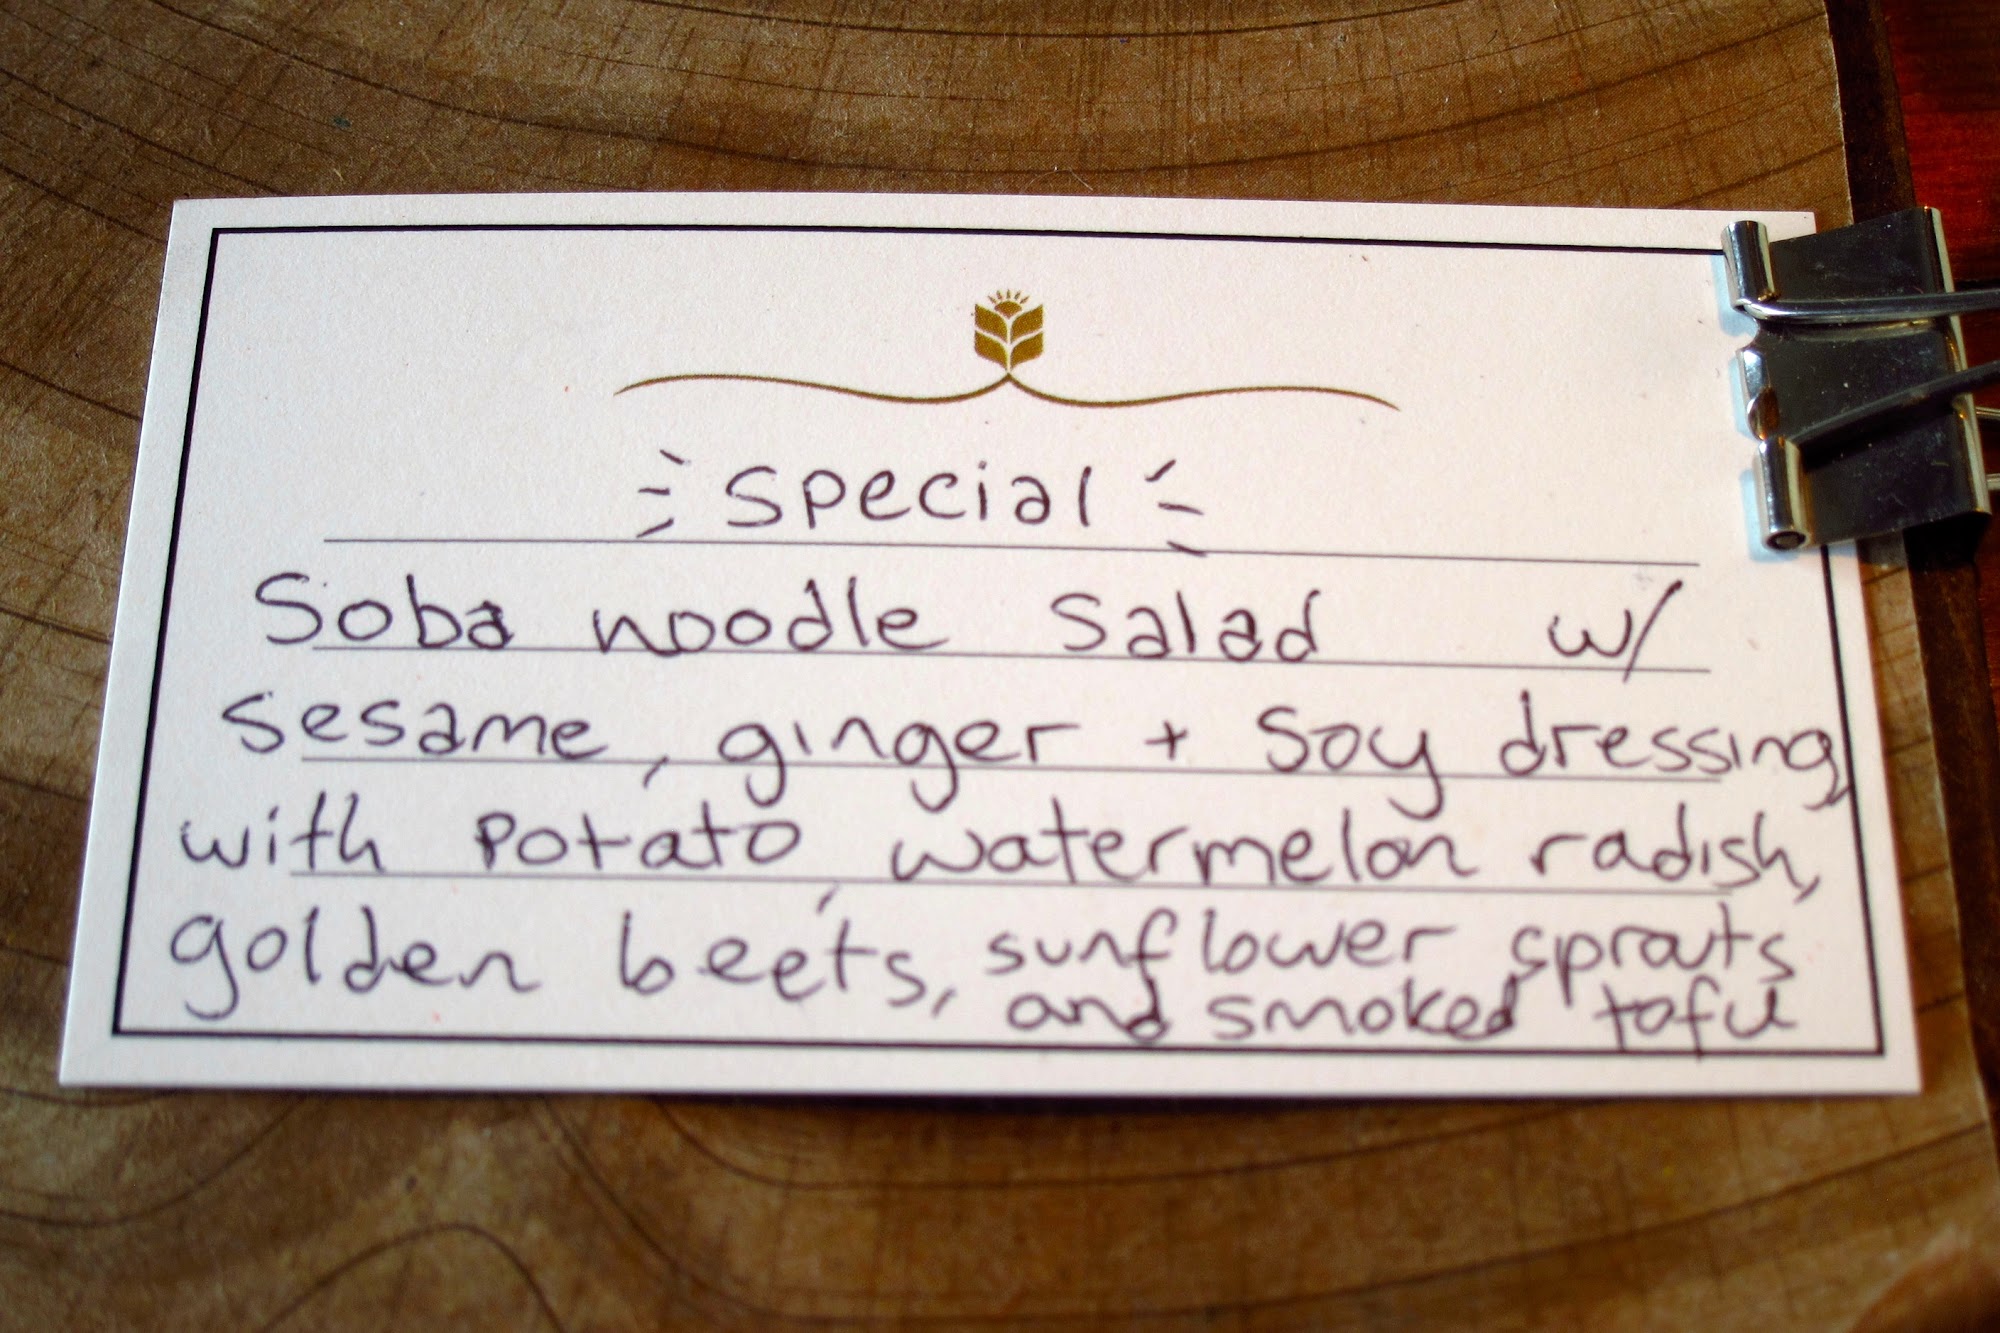 special
Soba noodle Salad w/
sesame, ginger + Soy dressing
with potato, watermelon radish,
golden beets, sunflower sprouts
and smoked tofu